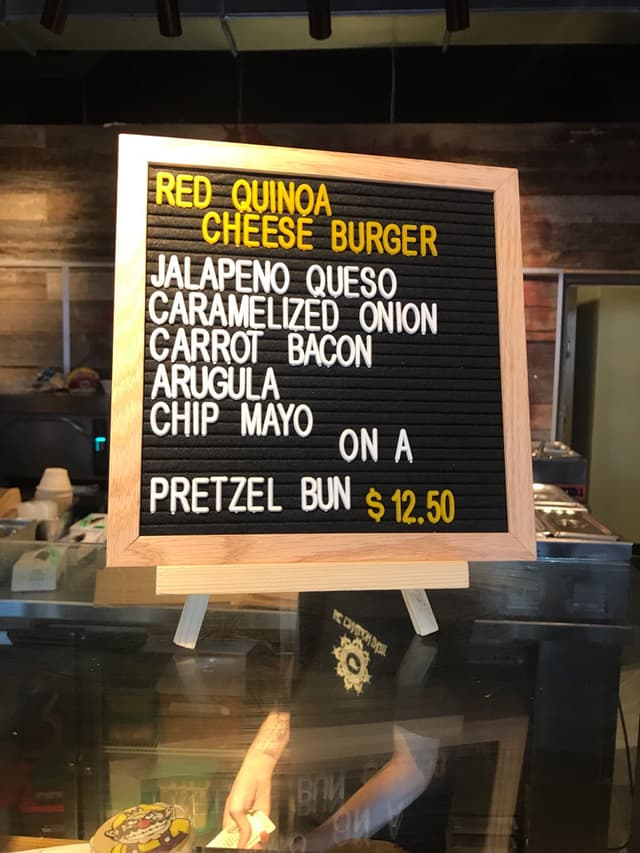 RED QUINOA
CHEESE BURGER
JALAPENO QUESO
CARAMELIZED ONION
CARROT BACON
ARUGULA
CHIP MAYO
ON A
PRETZEL BUN $12.50
BUN
ON A